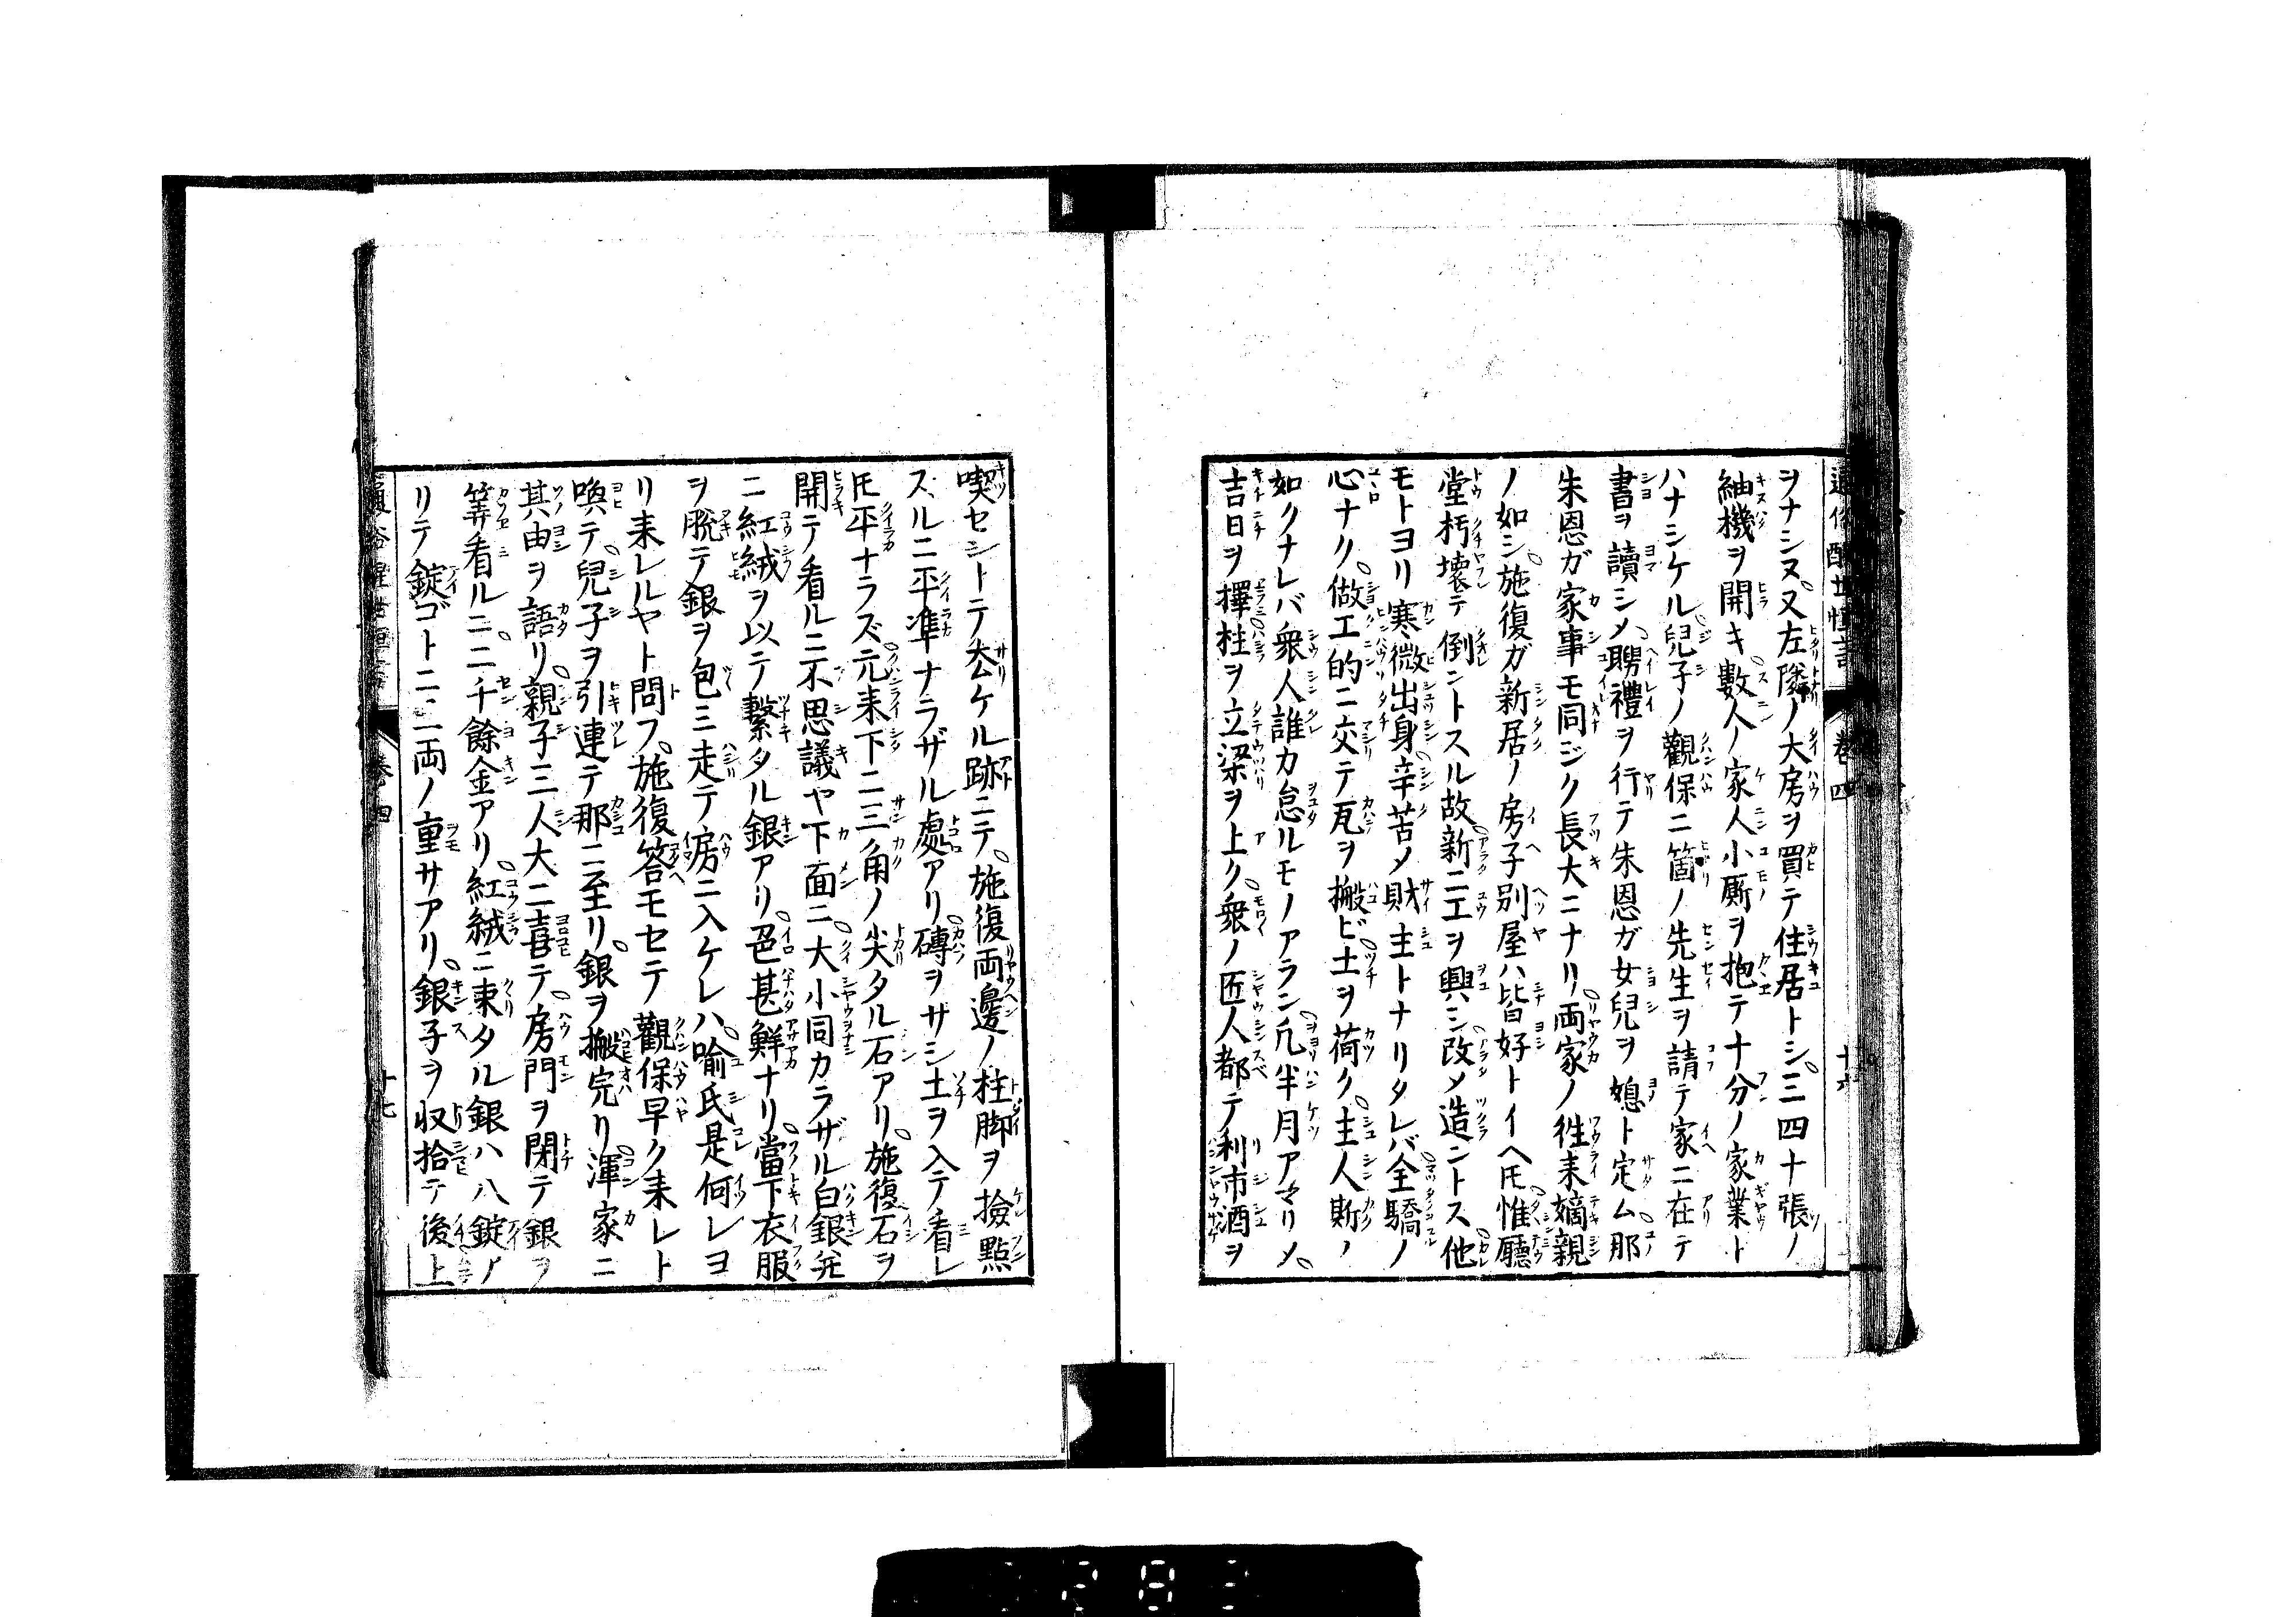 ヲナシヌ又左隣ノ大房ヲ買テ住居トシ三四十張ノ
紬機ヲ開キ數人ノ家人小厮ヲ抱テ十分ノ家業ト
ハナシケル兒子ノ觀保ニ箇ノ先生ヲ請テ家ニ在テ
書ヲ讀シメ聘禮ヲ行テ朱恩ガ女兒ヲ媳ト定ム那
朱恩ガ家事モ同ジク長大ニナリ両家ノ徃来嫡親
ノ如シ施復ガ新居ノ房子別屋ハ皆好トイヘ𪜈惟廳
堂朽壊テ倒ントスル故新ニ工ヲ興シ改メ造ントス他
モトヨリ寒微出身辛苦メ財主トナリタレバ全驕ノ
心ナク做工的ニ交テ瓦ヲ搬ビ土ヲ荷ク主人斯ノ
如クナレバ衆人誰カ怠ルモノアラン凢半月アマリメ
吉日ヲ擇柱ヲ立梁ヲ上ク衆ノ匠人都テ利市酒ヲ
通俗醒世恒言 巻四 十六
喫セントテ去ケル跡ニテ施復両邊ノ柱脚ヲ撿點
スルニ平準ナラザル處アリ磚ヲサシ土ヲ入テ看レ
𪜈平ナラズ元来下ニ三角ノ尖タル石アリ施復石ヲ
開テ看ルニ不思議ヤ下面ニ大小同カラザル白銀并
ニ紅絨ヲ以テ繋タル銀アリ色甚鮮ナリ當下衣服
ヲ脱テ銀ヲ包ミ走テ房ニ入ケレハ喻氏是何レヨ
リ来レルヤト問フ施復答モセテ觀保早ク来レト
喚テ兒子ヲ引連テ那ニ至リ銀ヲ搬完リ渾家ニ
其由ヲ語リ親子三人大ニ喜テ房門ヲ閉テ銀ヲ
筭看ルニ二千餘金アリ紅絨ニ束タル銀ハ八錠ア
リテ錠ゴトニ三両ノ重サアリ銀子ヲ収拾テ後上
通俗醒世恒言 巻四 十七